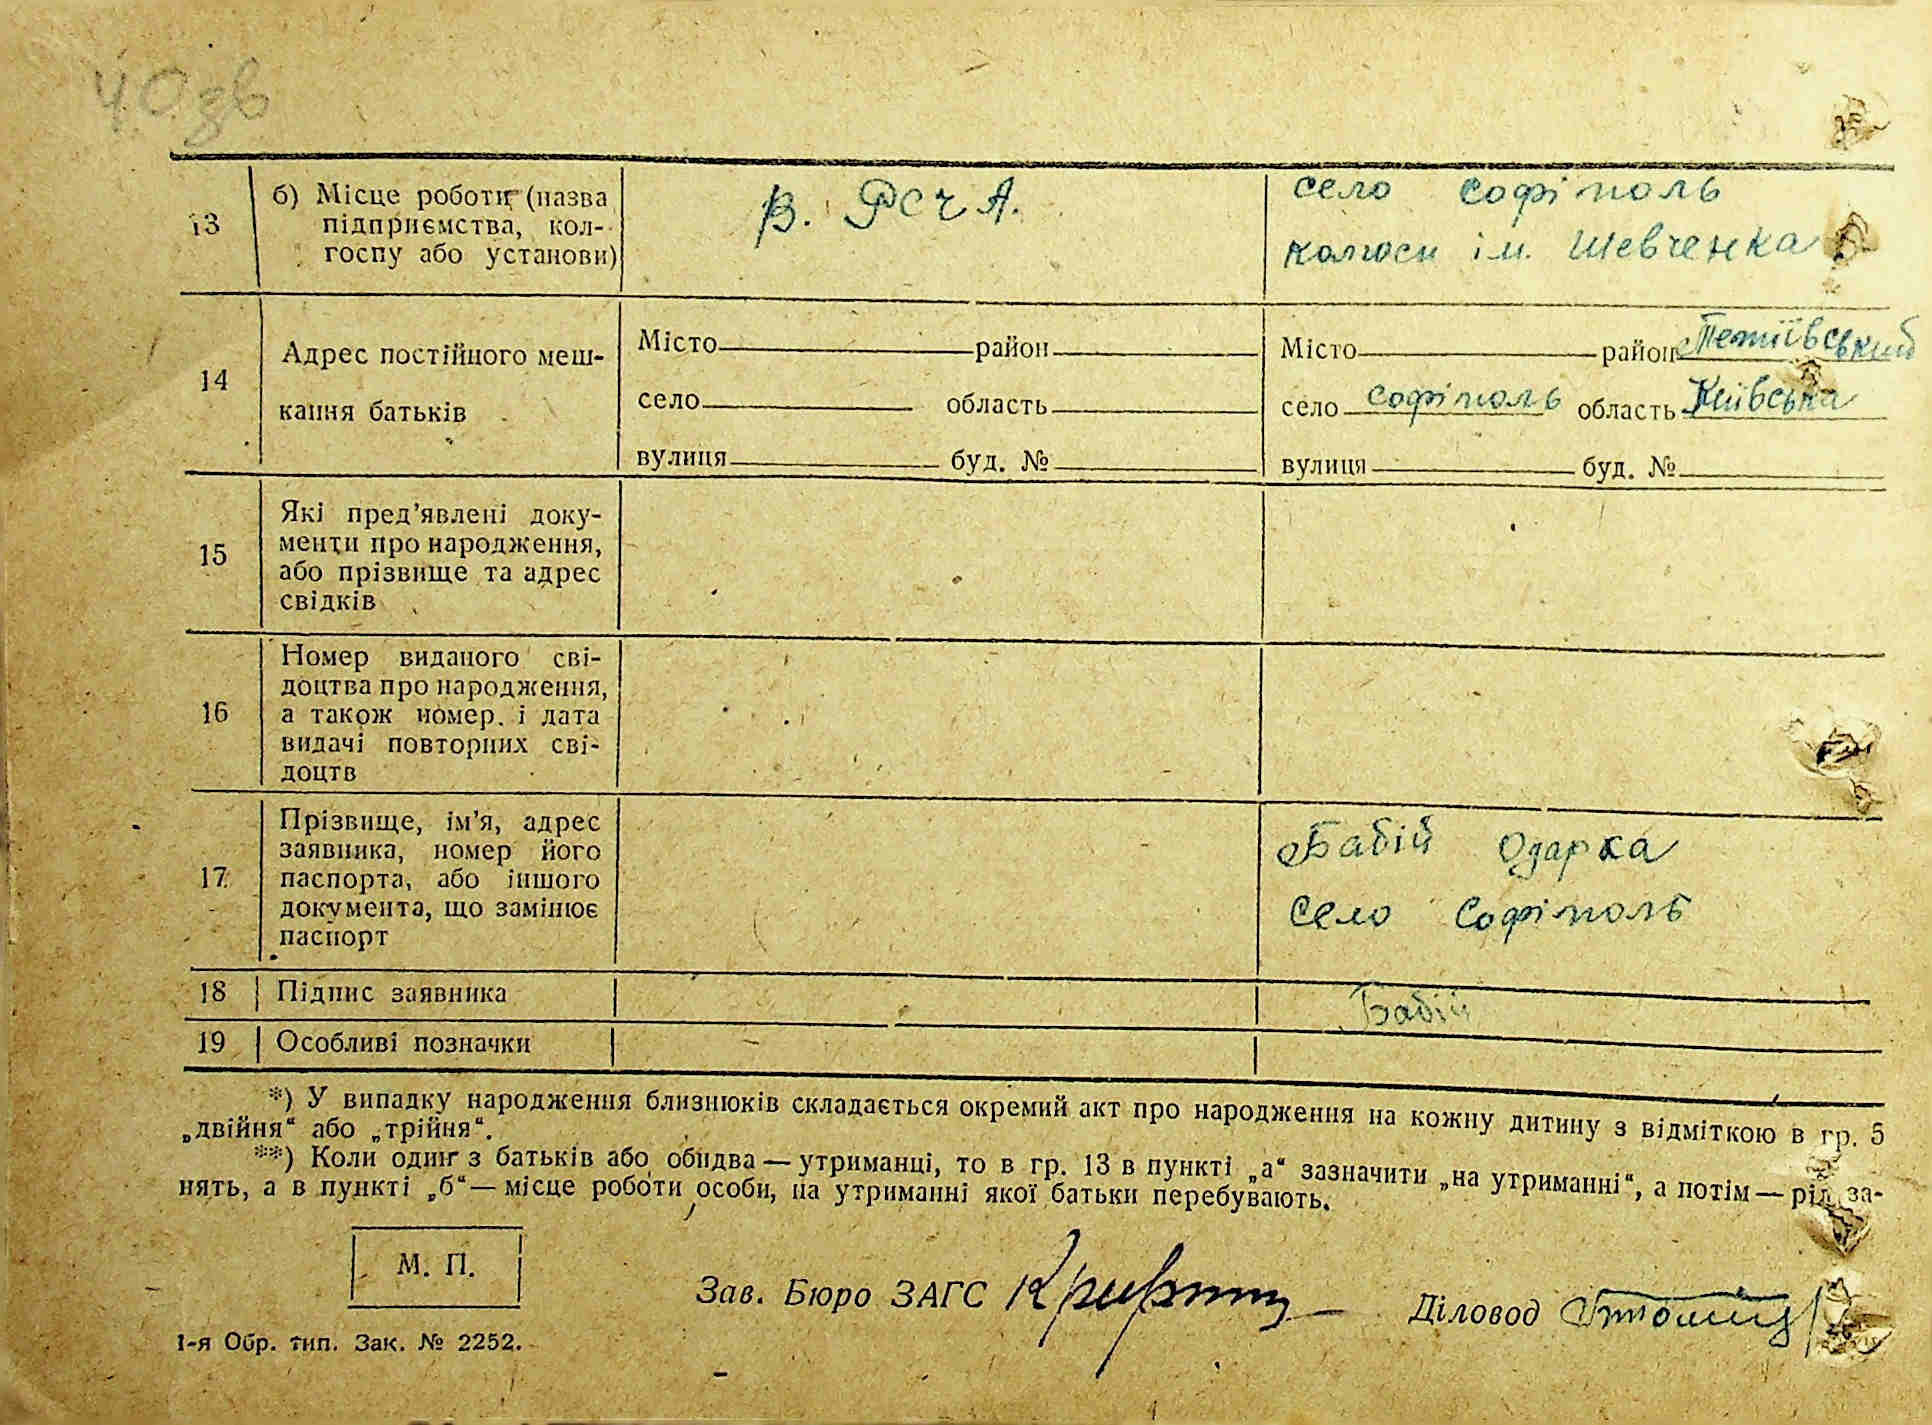 40 зв
13
б) Місце роботи (назва
підприємства, кол-
госпу або установи)
В. РСЧА.
село Софіполь
колгосп ім. Шевченка
14
Адрес постійного меш-
кання батьків
Місто район
село область
вулиця буд. №
Місто район Тетиївський
село Софіполь область Київська
вулиця буд. №
15
Які пред'явлені доку-
менти про народження,
або прізвище та адрес
свідків
16
Номер виданого сві-
доцтва про народження,
а також номер. і дата
видачі повторних сві-
доцтв
17
Прізвище, ім'я, адрес
заявника, номер його
паспорта, або іншого
документа, що замінює
паспорт
Бабій Одарка
Село Софіполь
18 Підпис заявника
Бабій
19 Особливі позначки
*) У випадку народження близнюків складається окремий акт про народження на кожну дитину з відміткою в гр. 5
„двійня“ або „трійня“.
**) Коли один з батьків або обидва — утриманці, то в гр. 13 в пункті „а“ зазначити „на утриманні“, а потім — рід за-
нять, а в пункті „б“ — місце роботи особи, на утриманні якої батьки перебувають.
М. П.
Зав. Бюро ЗАГС
Діловод
1-я Обр. тип. Зак. № 2252.